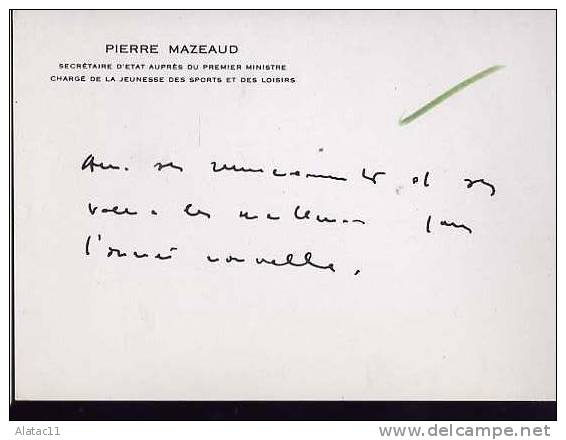 PIERRE MAZEAUD
SECRÉTAIRE D'ETAT AUPRÈS DU PREMIER MINISTRE
CHARGÉ DE LA JEUNESSE DES SPORTS ET DES LOISIRS
Avec ses remerciements et ses
vœux les meilleurs pour
l'année nouvelle.
Alatac11
delcampe.net